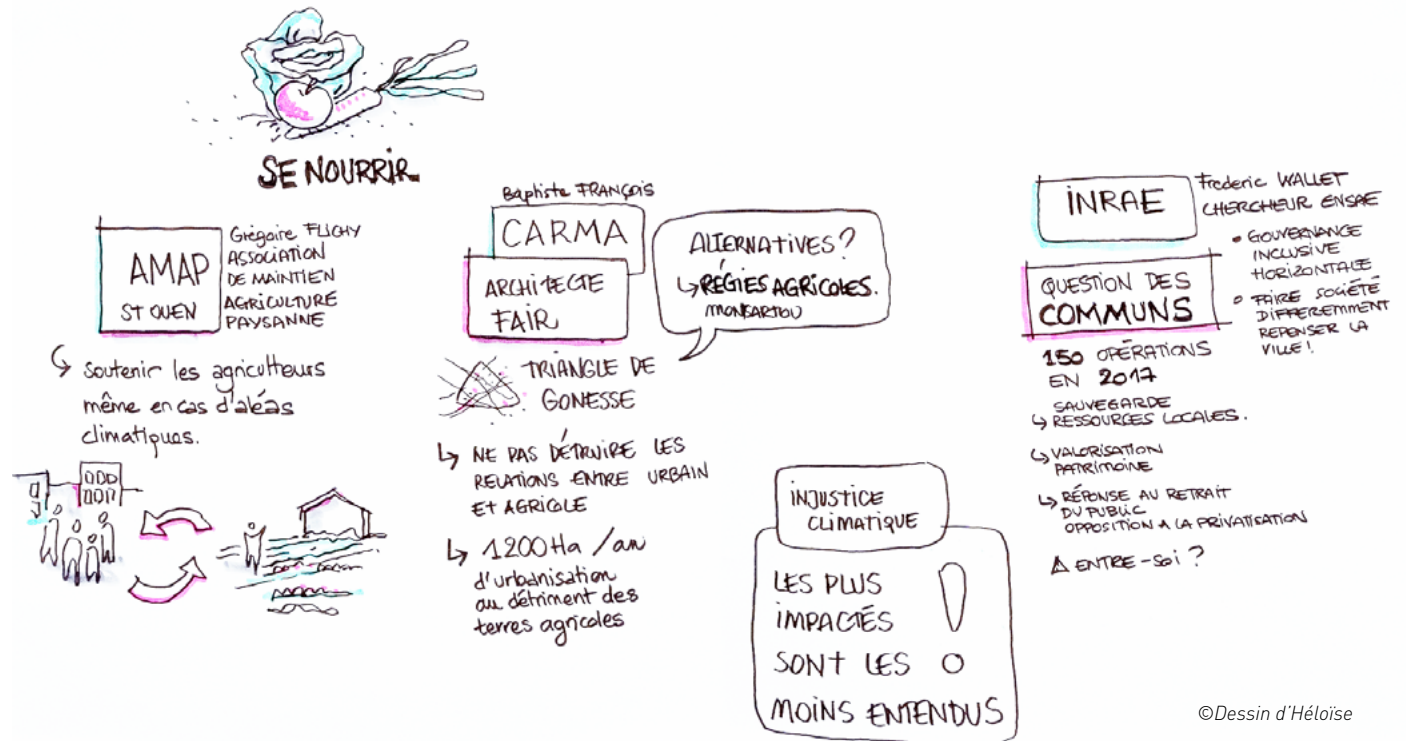 SE NOURRIR
AMAP
ST OUEN
Grégoire FLICHY
ASSOCIATION
DE MAINTIEN
AGRICULTURE
PAYSANNE
↳ Soutenir les agriculteurs
même en cas d'aléas
climatiques.
Baptiste FRANÇOIS
CARMA
ARCHITECTE
FAIR
ALTERNATIVES?
↳ RÉGIES AGRICOLES.
MONSARTOU
TRIANGLE DE
GONESSE
↳ NE PAS DÉTRUIRE LES
RELATIONS ENTRE URBAIN
ET AGRICOLE
↳ 1200 Ha / an
d'urbanisation
au détriment des
terres agricoles
INJUSTICE
CLIMATIQUE
LES PLUS
IMPACTÉS
SONT LES
MOINS ENTENDUS
!
INRAE
Frederic WALLET
CHERCHEUR ENSAE
• GOUVERNANCE
INCLUSIVE
HORIZONTALE
• FAIRE SOCIÉTÉ
DIFFEREMMENT
REPENSER LA
VILLE!
QUESTION DES
COMMUNS
150 OPÉRATIONS
EN 2017
SAUVEGARDE
↳ RESSOURCES LOCALES.
↳ VALORISATION
PATRIMOINE
↳ RÉPONSE AU RETRAIT
DU PUBLIC
OPPOSITION A LA PRIVATISATION
⚠ ENTRE-SOI?
©Dessin d'Héloïse